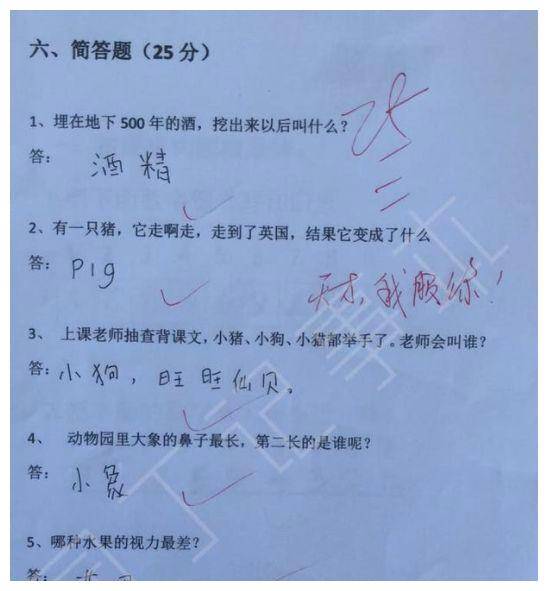 六、简答题（25 分）
25
1、埋在地下 500 年的酒，挖出来以后叫什么？
答： 酒精
2、有一只猪，它走啊走，走到了英国，结果它变成了什么
答： Pig
天才，我服你！
3、 上课老师抽查背课文，小猪、小狗、小猫都举手了。老师会叫谁？
答： 小狗，旺旺仙贝。
4、 动物园里大象的鼻子最长，第二长的是谁呢？
答： 小象
5、哪种水果的视力最差？
答：